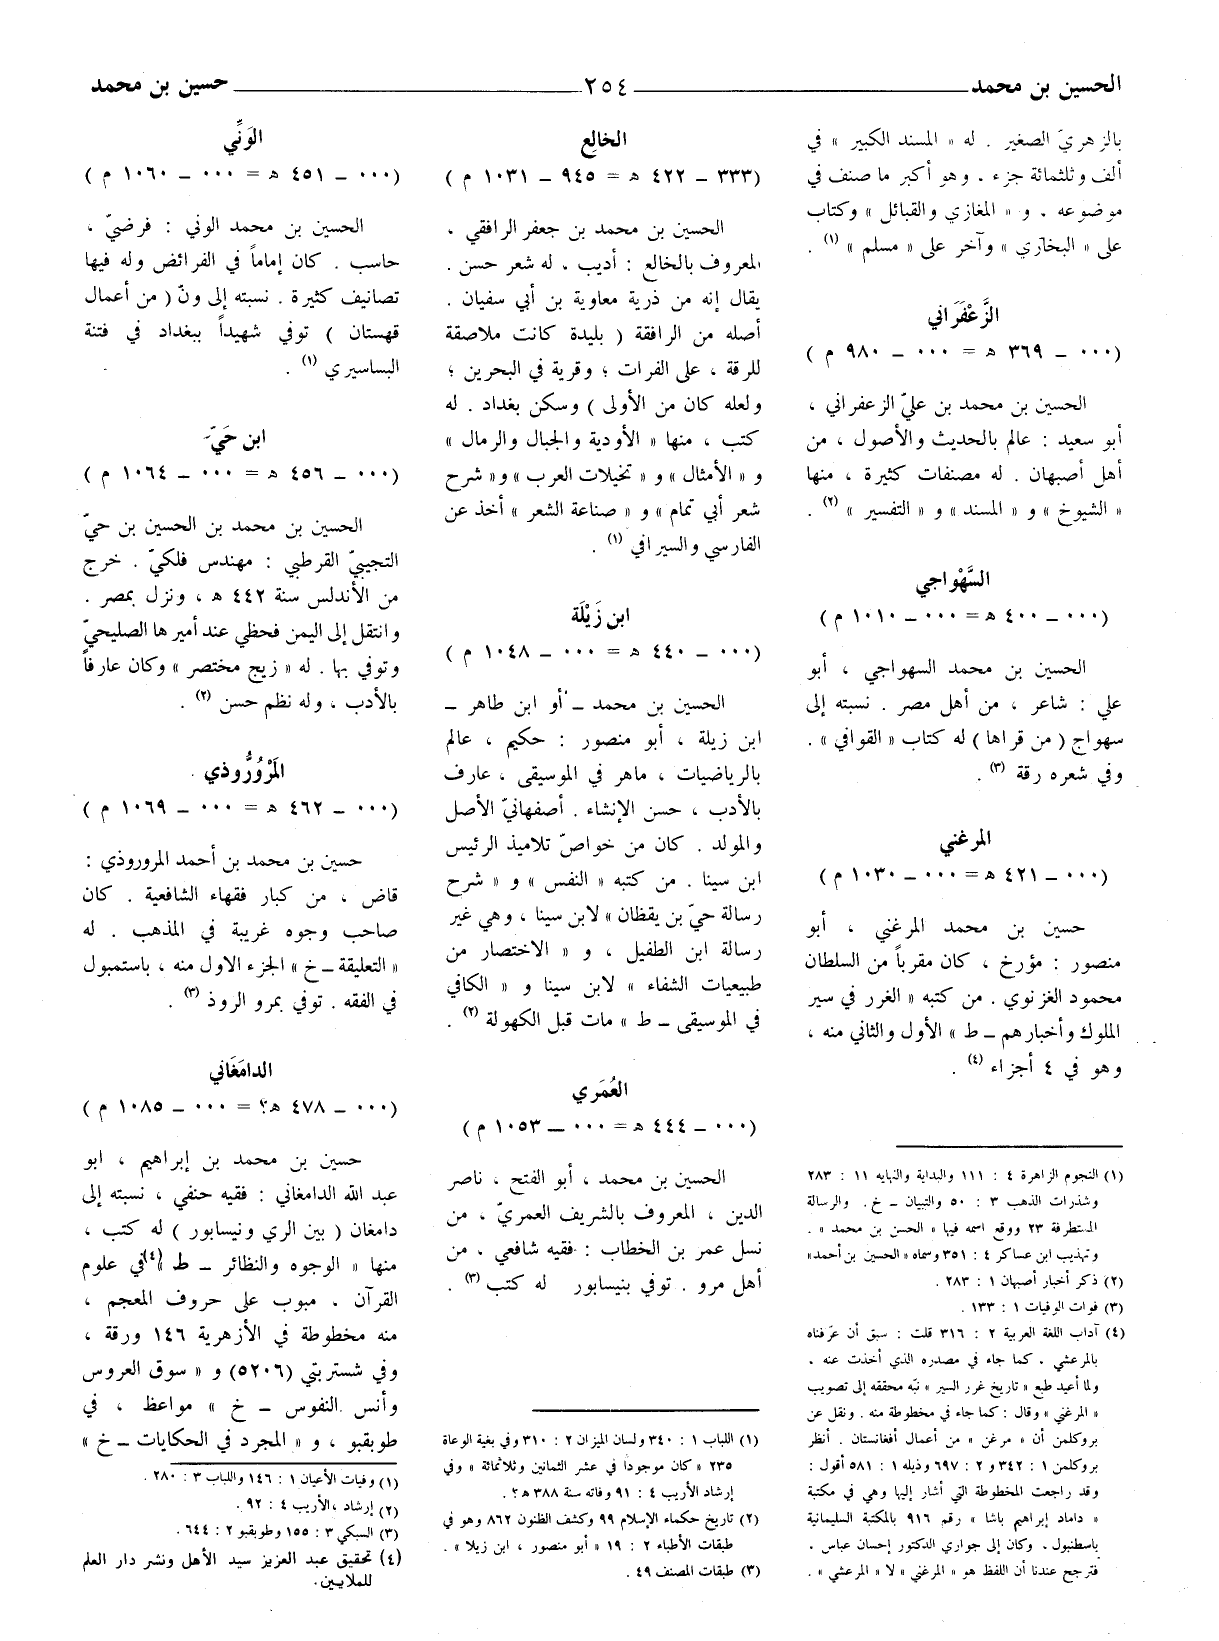 الحسين بن محمد ٢٥٤ حسين بن محمد
بالزهريّ الصغير . له « المسند الكبير » في
ألف وثلثمائة جزء . وهو أكبر ما صنف في
موضوعه . و « المغازي والقبائل » وكتاب
على « البخاري » وآخر على « مسلم » (١) .
الزَّعْفَراني
(٠٠٠ ـ ٣٦٩ هـ = ٠٠٠ ـ ٩٨٠ م )
الحسين بن محمد بن عليّ الزعفراني ،
أبو سعيد : عالم بالحديث والأصول ، من
أهل أصبهان . له مصنفات كثيرة ، منها
« الشيوخ » و « المسند » و « التفسير » (٢) .
السَّهْواجي
(٠٠٠ ـ ٤٠٠ هـ = ٠٠٠ ـ ١٠١٠ م )
الحسين بن محمد السهواجي ، أبو
علي : شاعر ، من أهل مصر . نسبته إلى
سهواج ( من قراها ) له كتاب « القوافي » .
وفي شعره رقة (٣) .
المرغني
(٠٠٠ ـ ٤٢١ هـ = ٠٠٠ ـ ١٠٣٠ م )
حسين بن محمد المرغني ، أبو
منصور : مؤرخ ، كان مقرباً من السلطان
محمود الغزنوي . من كتبه « الغرر في سير
الملوك وأخبارهم ـ ط » الأول والثاني منه ،
وهو في ٤ أجزاء (٤) .
(١) النجوم الزاهرة ٤ : ١١١ والبداية والنهاية ١١ : ٢٨٣
وشذرات الذهب ٣ : ٥٠ والتبيان ـ خ . والرسالة
المستطرفة ٢٣ ووقع اسمه فيها « الحسن بن محمد » .
وتهذيب ابن عساكر ٤ : ٣٥١ وسماه « الحسين بن أحمد »
(٢) ذكر أخبار أصبهان ١ : ٢٨٣ .
(٣) فوات الوفيات ١ : ١٣٣ .
(٤) آداب اللغة العربية ٢ : ٣١٦ قلت : سبق أن عرّفناه
بالمرعشي . كما جاء في مصدره الذي أخذت عنه .
ولما أعيد طبع « تاريخ غرر السير » نبّه محققه إلى تصويب
« المرغني » وقال : كما جاء في مخطوطة منه . ونقل عن
بروكلمن أن « مرغن » من أعمال أفغانستان . أنظر
بروكلمن ١ : ٣٤٢ و ٢ : ٦٩٧ وذيله ١ : ٥٨١ أقول :
وقد راجعت المخطوطة التي أشار إليها وهي في مكتبة
« داماد إبراهيم باشا » رقم ٩١٦ بالمكتبة السليمانية
باسطنبول . وكان إلى جواري الدكتور إحسان عباس .
فترجح عندنا أن اللفظ هو « المرغني » لا « المرعشي » .
الخالِع
(٣٣٣ ـ ٤٢٢ هـ = ٩٤٥ ـ ١٠٣١ م )
الحسين بن محمد بن جعفر الرافقي ،
المعروف بالخالع : أديب ، له شعر حسن .
يقال إنه من ذرية معاوية بن أبي سفيان .
أصله من الرافقة ( بليدة كانت ملاصقة
للرقة ، على الفرات ؛ وقرية في البحرين ؛
ولعله كان من الأولى ) وسكن بغداد . له
كتب ، منها « الأودية والجبال والرمال »
و « الأمثال » و « تخيلات العرب » و « شرح
شعر أبي تمام » و « صناعة الشعر » أخذ عن
الفارسي والسيرافي (١) .
ابن زَيْلَة
(٠٠٠ ـ ٤٤٠ هـ = ٠٠٠ ـ ١٠٤٨ م )
الحسين بن محمد ـ أو ابن طاهر ـ
ابن زيلة ، أبو منصور : حكيم ، عالم
بالرياضيات ، ماهر في الموسيقى ، عارف
بالأدب ، حسن الإنشاء . أصفهانيّ الأصل
والمولد . كان من خواصّ تلاميذ الرئيس
ابن سينا . من كتبه « النفس » و « شرح
رسالة حيّ بن يقظان » لابن سينا ، وهي غير
رسالة ابن الطفيل ، و « الاختصار من
طبيعيات الشفاء » لابن سينا و « الكافي
في الموسيقى ـ ط » مات قبل الكهولة (٢) .
العُمَري
(٠٠٠ ـ ٤٤٤ هـ = ٠٠٠ ـ ١٠٥٣ م )
الحسين بن محمد ، أبو الفتح ، ناصر
الدين ، المعروف بالشريف العمريّ ، من
نسل عمر بن الخطاب : فقيه شافعي ، من
أهل مرو . توفي بنيسابور له كتب (٣) .
(١) اللباب ١ : ٣٤٠ ولسان الميزان ٢ : ٣١٠ وفي بغية الوعاة
٢٣٥ « كان موجوداً في عشر الثمانين وثلاثمائة » وفي
إرشاد الأريب ٤ : ٩١ وفاته سنة ٣٨٨ هـ؟ .
(٢) تاريخ حكماء الإسلام ٩٩ وكشف الظنون ٨٦٢ وهو في
طبقات الأطباء ٢ : ١٩ « أبو منصور ، ابن زيلا » .
(٣) طبقات المصنف ٤٩ .
الوَنِّي
(٠٠٠ ـ ٤٥١ هـ = ٠٠٠ ـ ١٠٦٠ م )
الحسين بن محمد الوني : فرضيّ ،
حاسب . كان إماماً في الفرائض وله فيها
تصانيف كثيرة . نسبته إلى ونّ ( من أعمال
قهستان ) توفي شهيداً ببغداد في فتنة
البساسيري (١) .
ابن حَيّ
(٠٠٠ ـ ٤٥٦ هـ = ٠٠٠ ـ ١٠٦٤ م )
الحسين بن محمد بن الحسين بن حيّ
التجيبيّ القرطبي : مهندس فلكيّ . خرج
من الأندلس سنة ٤٤٢ هـ ، ونزل بمصر .
وانتقل إلى اليمن فحظي عند أميرها الصليحيّ
وتوفي بها . له « زيج مختصر » وكان عارفاً
بالأدب ، وله نظم حسن (٢) .
المَرْوُرُّوذي
(٠٠٠ ـ ٤٦٢ هـ = ٠٠٠ ـ ١٠٦٩ م )
حسين بن محمد بن أحمد المروروذي :
قاض ، من كبار فقهاء الشافعية . كان
صاحب وجوه غريبة في المذهب . له
« التعليقة ـ خ » الجزء الاول منه ، باستمبول
في الفقه . توفي بمرو الروذ (٣) .
الدامَغَاني
(٠٠٠ ـ ٤٧٨ هـ؟ = ٠٠٠ ـ ١٠٨٥ م )
حسين بن محمد بن إبراهيم ، ابو
عبد الله الدامغاني : فقيه حنفي ، نسبته إلى
دامغان ( بين الري ونيسابور ) له كتب ،
منها « الوجوه والنظائر ـ ط »(٤) في علوم
القرآن . مبوب على حروف المعجم ،
منه مخطوطة في الأزهرية ١٤٦ ورقة ،
وفي شستربتي (٥٢٠٦) و « سوق العروس
وأنس النفوس ـ خ » مواعظ ، في
طوبقبو ، و « المجرد في الحكايات ـ خ »
(١) وفيات الأعيان ١ : ١٤٦ واللباب ٣ : ٢٨٠ .
(٢) إرشاد الأريب ٤ : ٩٢ .
(٣) السبكي ٣ : ١٥٥ وطوبقبو ٢ : ٦٤٤ .
(٤) تحقيق عبد العزيز سيد الأهل ونشر دار العلم
للملايين.